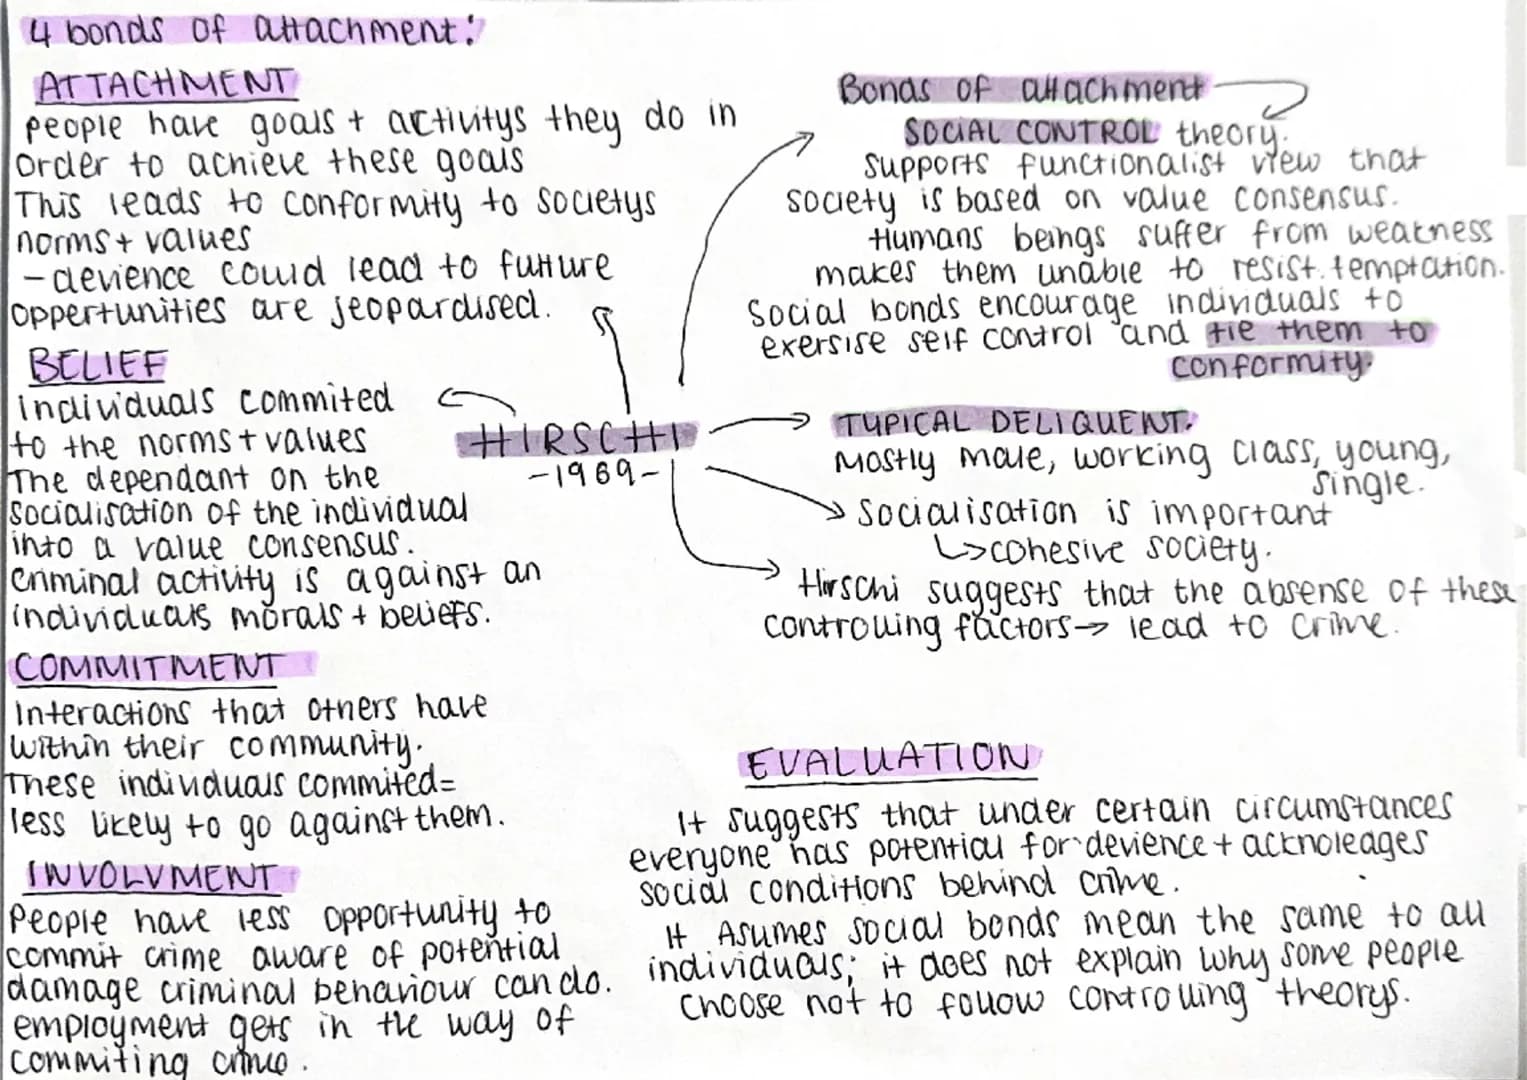 4 bonds of attachment:
ATTACHMENT
people have goals + activitys they do in
order to achieve these goals
This leads to conformity to societys
norms + values
- devience could lead to future
oppertunities are jeopardised.
BELIEF
individuals commited
to the norms + values
The dependant on the
socialisation of the individual
into a value consensus.
criminal activity is against an
individuals morals + beliefs.
COMMITMENT
Interactions that others have
within their community.
These individuals commited =
less likely to go against them.
INVOLVMENT
People have less opportunity to
commit crime aware of potential
damage criminal behaviour can do.
employment gets in the way of
commiting crime.
HIRSCHI
-1969-
Bonds of attachment
SOCIAL CONTROL theory.
supports functionalist view that
society is based on value consensus.
Humans beings suffer from weakness
makes them unable to resist temptation.
Social bonds encourage individuals to
exersise self control and tie them to
conformity.
TYPICAL DELIQUENT.
Mostly male, working class, young,
single.
Socialisation is important
↳cohesive society.
Hirschi suggests that the absense of these
controlling factors → lead to crime.
EVALUATION
It suggests that under certain circumstances
everyone has potential for devience + acknoledges
social conditions behind crime.
It Asumes social bonds mean the same to all
individuals; it does not explain why some people
choose not to follow controlling theorys.